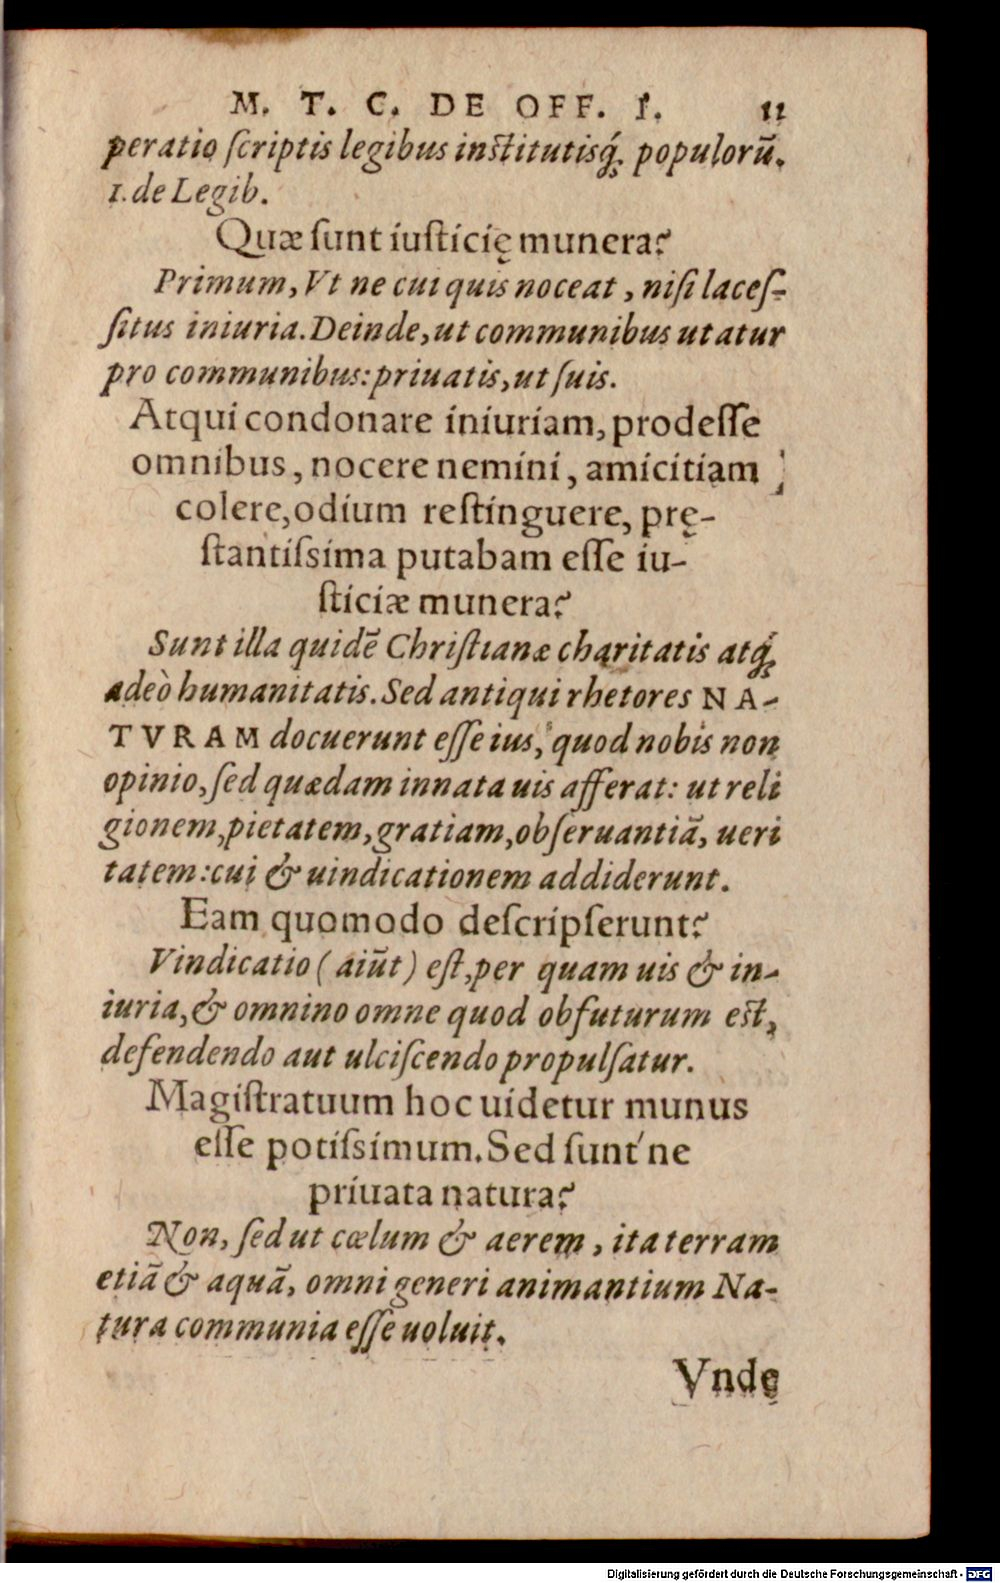 M. T. C. DE OFF. I. 11
peratio ſcriptis legibus inſtitutisq́ꝫ populorū.
1. de Legib.
Quæ ſunt iuſticię munera?
Primum, Vt ne cui quis noceat, niſi laceſ-
ſitus iniuria. Deinde, ut communibus utatur
pro communibus: priuatis, ut ſuis.
Atqui condonare iniuriam, prodeſſe
omnibus, nocere nemini, amicitiam
colere, odium reſtinguere, prę-
ſtantiſsima putabam eſſe iu-
ſticiæ munera?
Sunt illa quidē Chriſtianæ charitatis atq́ꝫ
adeò humanitatis. Sed antiqui rhetores NA-
TVRAM docuerunt eſſe ius, quod nobis non
opinio, ſed quædam innata uis afferat: ut reli
gionem, pietatem, gratiam, obſeruantiā, ueri
tatem: cui & uindicationem addiderunt.
Eam quomodo deſcripſerunt?
Vindicatio (aiūt) eſt, per quam uis & in-
iuria, & omnino omne quod obfuturum eſt,
defendendo aut ulciſcendo propulſatur.
Magiſtratuum hoc uidetur munus
eſſe potiſsimum. Sed ſunt'ne
priuata natura?
Non, ſed ut cœlum & aerem, ita terram
etiā & aquā, omni generi animantium Na-
tura communia eſſe uoluit.
Vnde
Digitalisierung gefördert durch die Deutsche Forschungsgemeinschaft - DFG